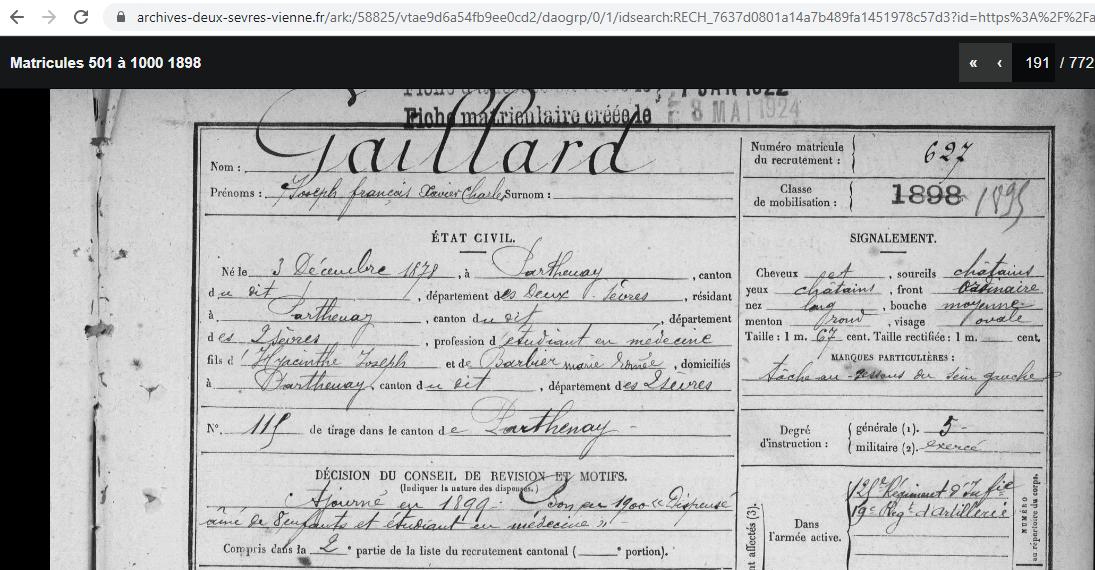 archives-deux-sevres-vienne.fr/ark:/58825/vtae9d6a54fb9ee0cd2/daogrp/0/1/idsearch:RECH_7637d0801a14a7b489fa1451978c57d3?id=https%3A%2F%2Fa
Matricules 501 à 1000 1898
« ‹ 191 / 772
JAN 1922
Fiche matriculaire créée le 8 MAI 1924
Nom : Gaillard
Prénoms : Joseph françois Xavier Charles Surnom :
Numéro matricule du recrutement : 627
Classe de mobilisation : 1898 1895
ÉTAT CIVIL.
Né le 3 Décembre 1878, à Parthenay, canton
du dit, département des Deux-Sèvres, résidant
à Parthenay, canton du dit, département
des 2 Sèvres, profession d'étudiant en médecine
fils d'Hyacinthe Joseph et de Barbier marie, domiciliés
à Parthenay, canton du dit, département des 2 Sèvres
N°. 115 de tirage dans le canton de Parthenay
SIGNALEMENT.
Cheveux et, sourcils châtains
yeux châtains, front ordinaire
nez long, bouche moyenne
menton rond, visage ovale
Taille : 1 m. 67 cent. Taille rectifiée : 1 m. cent.
MARQUES PARTICULIÈRES :
tâche au-dessous du sein gauche
Degré d'instruction :
générale (1). 5
militaire (2). exercé
DÉCISION DU CONSEIL DE REVISION ET MOTIFS.
(Indiquer la nature des dispenses.)
Ajourné en 1899 - Bon en 1900 « Dispensé
aîné de 7 enfants et étudiant en médecine »
Compris dans la 2e partie de la liste du recrutement cantonal ( portion).
nt affectés (3).
Dans l'armée active.
125e Régiment d'Infie
19e Regt d'artillerie
NUMÉRO
au répertoire du corps.